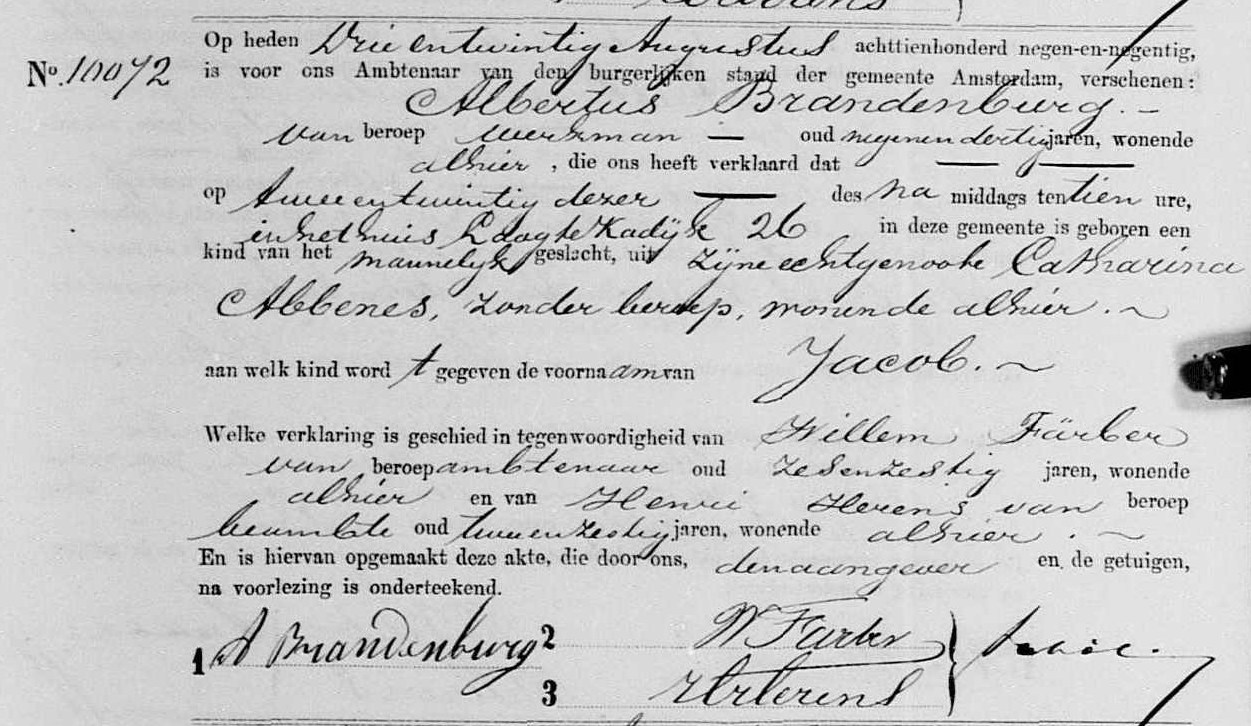 Op heden Drie en twintig Augustus achttienhonderd negen-en-negentig,
No. 10072 is voor ons Ambtenaar van den burgerlijken stand der gemeente Amsterdam, verschenen:
Albertus Brandenburg. —
van beroep werkman — oud negenendertig jaren, wonende
alhier, die ons heeft verklaard dat — —
op tweeentwintig dezer — des na middags ten tien ure,
in het huis Laagte Kadijk 26 in deze gemeente is geboren een
kind van het mannelijk geslacht, uit zijne echtgenoote Catharina
Abbenes, zonder beroep, wonende alhier. ~
aan welk kind word t gegeven de voornaam van Jacob. ~
Welke verklaring is geschied in tegenwoordigheid van Willem Färber
van beroep ambtenaar oud zesenzestig jaren, wonende
alhier en van Henri Herens van beroep
beambte oud tweeenzestig jaren, wonende alhier. ~
En is hiervan opgemaakt deze akte, die door ons, den aangever en de getuigen,
na voorlezing is onderteekend.
1 A Brandenburg 2 W Färber
3